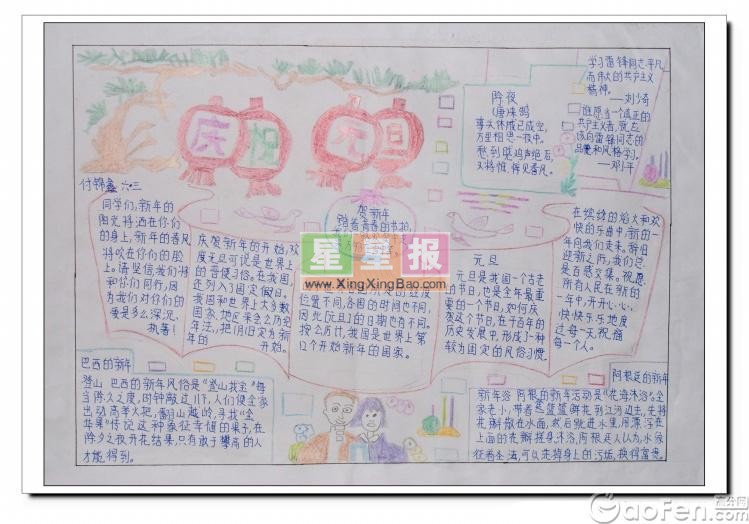 庆祝元旦
学习雷锋同志平凡
而伟大的共产主义
精神。
——刘少奇
谁愿当一个真正的
共产主义者,就应
该向雷锋同志的
品德和风格学习。
——邓小平
除夜
(唐)来鹄
事关休戚已成空,
万里相思一夜中。
愁到晓鸡声绝后,
又将憔悴见春风。
付锦鑫 六.三
同学们,新的年
阳光将洒在你们
的身上,新年的春风
将吹在你们的脸
上。请坚信我们将
和你们同行,因
为我们对你们的
爱是多么深沉、
执著!
庆贺新年的开始,欢
度元旦可说是世界上
的普便习俗。在我国,
还列入了固定假日。
我国和世界上大多数
国家、地区采会公历纪
年法,把1月1日定为新
年的开始。
贺新年
踏着青春的书拍,
位置不同,各国的时间也不同,
因此(元旦)的日期也有不同。
按公历计,我国是世界上第
12个开始新年的国家。
元旦
元旦是我国一个古老
的节日,也是全年最重
要的一个节日,如何庆
贺这个节日,在千百年的
历史发展中,形成了一种
较为固定的风俗习惯。
在缤纷的焰火和欢
快的乐曲中,新的一
年向我们走来。辞旧
迎新之际,我们总
是百感交集。祝愿
所有人民在新的
一年中,开开心心、
快快乐乐地度
过每一天,祝福
每一个人。
巴西的新年
登山 巴西的新年风俗是“登山找宝”每
当除久之度,时钟敲过11下,人们便全家
出动高举火把,翻山越岭,寻找“金
华果”传说这种象征幸福的果子,在
除夕之夜开花结果,只有敢于攀高的人
才能得到。
阿根廷的新年
新年浴 阿根的新年活动是“花海沐浴”。全
家老小,带着一篮篮鲜花到江河边去,先将
花瓣撒在水面,然后跳进水里,用漂浮在
上面的花瓣搓身沐浴,阿根廷人认为,水象
征着圣洁,可以洗掉身上的污垢,换得富贵。
星星报
www.XingXingBao.com
高分网
Gaofen.com